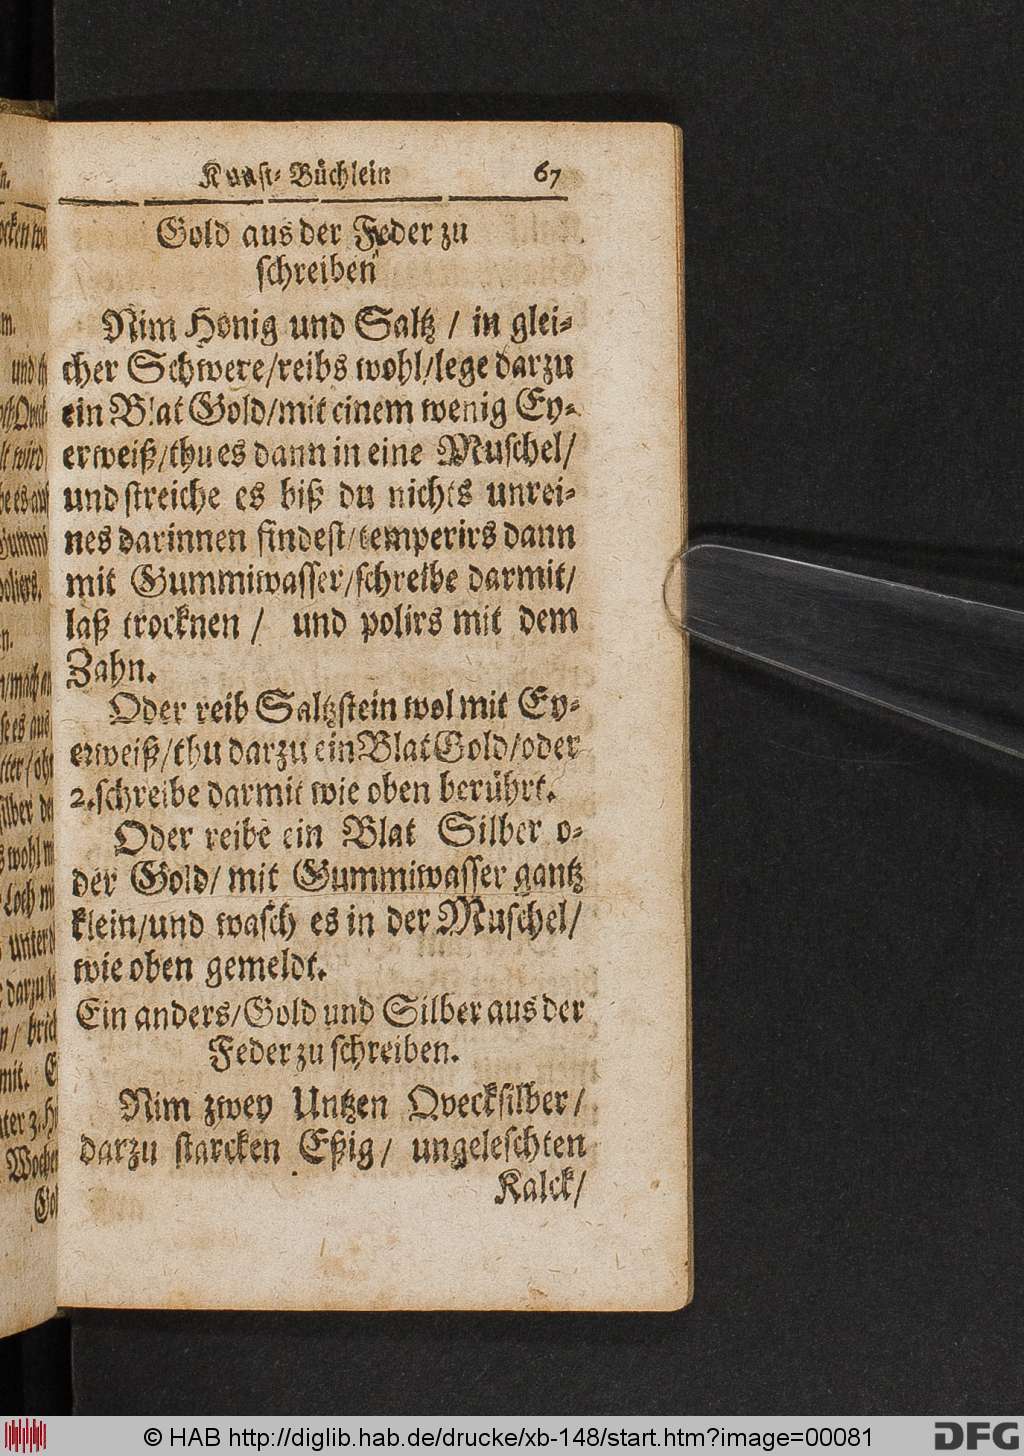 Kunst-Büchlein 67
Gold aus der Feder zu
schreiben
Nim Honig und Saltz / in glei-
cher Schwere/reibs wohl/lege darzu
ein Blat Gold/mit einem wenig Ey-
erweiß/thu es dann in eine Muschel/
und streiche es biß du nichts unrei-
nes darinnen findest/temperirs dann
mit Gummiwasser/schreibe darmit/
laß trocknen / und polirs mit dem
Zahn.
Oder reib Saltzstein wol mit Ey-
erweiß/thu darzu ein Blat Gold/oder
2. schreibe darmit wie oben berührt.
Oder reibe ein Blat Silber o-
der Gold/ mit Gummiwasser gantz
klein/und wasch es in der Muschel/
wie oben gemeldt.
Ein anders/Gold und Silber aus der
Feder zu schreiben.
Nim zwey Untzen Qvecksilber/
darzu starcken Eßig/ ungeleschten
Kalck/
© HAB http://diglib.hab.de/drucke/xb-148/start.htm?image=00081
DFG